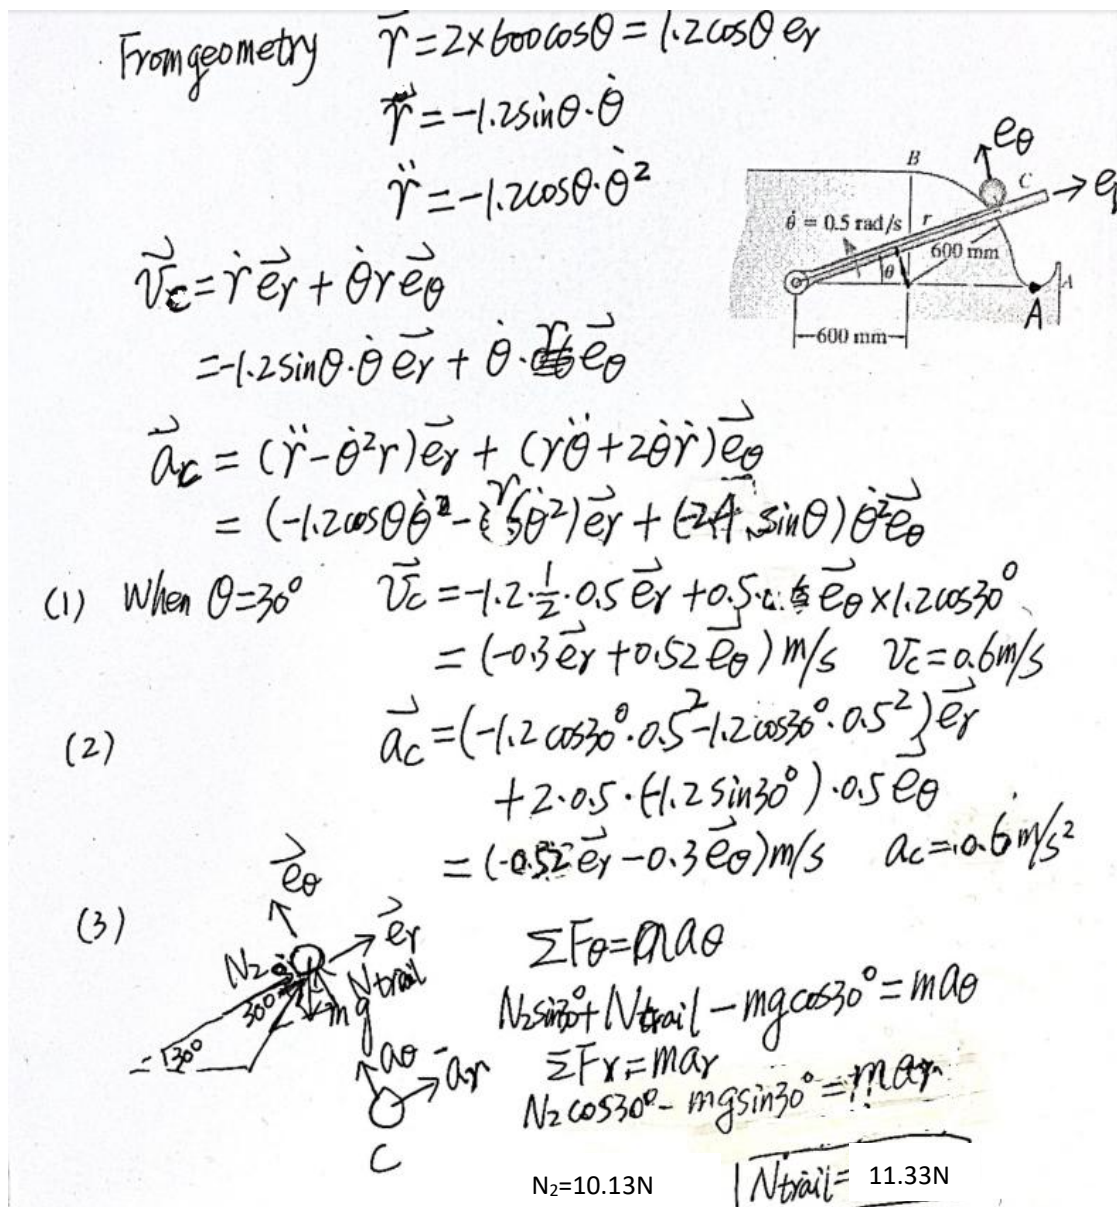 From geometry r⃗ = 2×600cosθ = 1.2cosθ er
ṙ = -1.2sinθ·θ̇
r̈ = -1.2cosθ·θ̇²
eθ
B
C
er
θ̇ = 0.5 rad/s
r
600 mm
θ
A
A
600 mm
v⃗c = ṙ e⃗r + θ̇r e⃗θ
= -1.2sinθ·θ̇ e⃗r + θ̇·r e⃗θ
a⃗c = (r̈ - θ̇²r) e⃗r + (rθ̈ + 2θ̇ṙ) e⃗θ
= (-1.2cosθθ̇² - rθ̇²) e⃗r + (-2.4 sinθ) θ̇² e⃗θ
(1) When θ=30° v⃗c = -1.2·½·0.5 e⃗r + 0.5· e⃗θ ×1.2cos30°
= (-0.3 e⃗r + 0.52 e⃗θ) m/s vc = 0.6m/s
(2) a⃗c = (-1.2cos30°·0.5² -1.2cos30°·0.5²) e⃗r
+ 2·0.5·(-1.2sin30°)·0.5 e⃗θ
= (-0.52 e⃗r - 0.3 e⃗θ) m/s ac = 0.6m/s²
(3)
e⃗θ
e⃗r
N2
Ntrail
30°
mg
30°
aθ
ar
C
ΣFθ = maθ
N2sin30° + Ntrail - mgcos30° = maθ
ΣFr = mar
N2cos30° - mgsin30° = mar
N2=10.13N
Ntrail = 11.33N